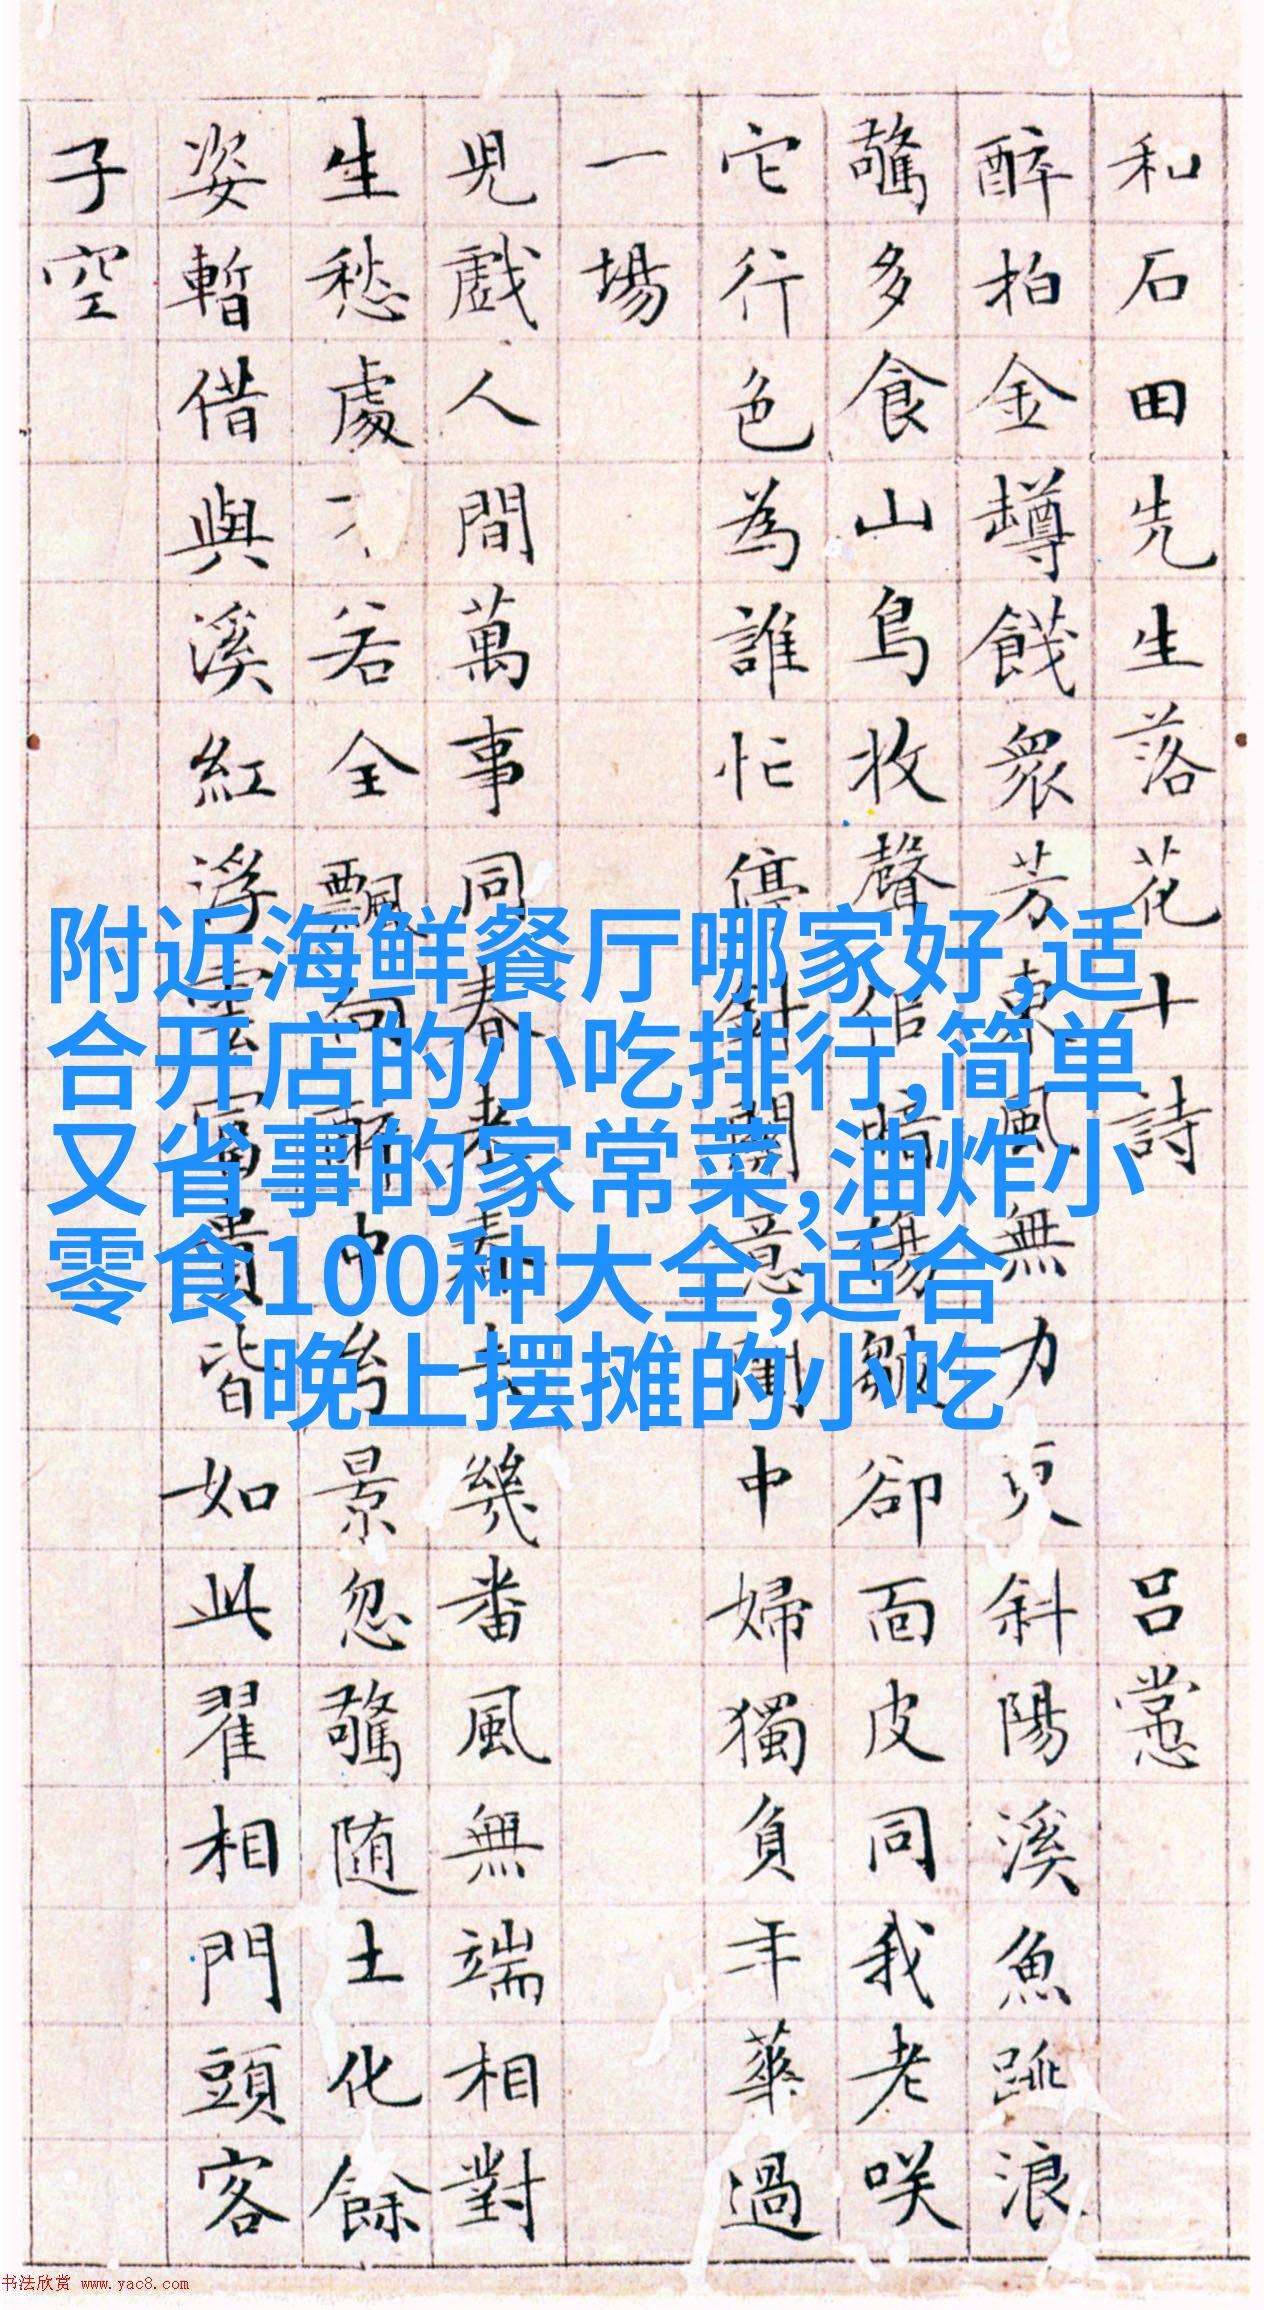 和石田先生落花十詩 呂
醉拍金罇餞衆芳東風無力斜陽溪魚跳浪
驚多食山鳥收聲暗傷皺卻面皮同我老咲
它行色為誰忙停針意中婦獨負年華過
一場
兒戲人間萬事同春老春去幾番風無端相對
生愁處若全飄向中景忽驚隨土化餘
姿暫借與溪紅浮雲富貴皆如此翟相門頭客
子空
附近海鲜餐厅哪家好,适
合开店的小吃排行,简单
又省事的家常菜,油炸小
零食100种大全,适合
晚上摆摊的小吃
书法欣赏 www.yac8.com